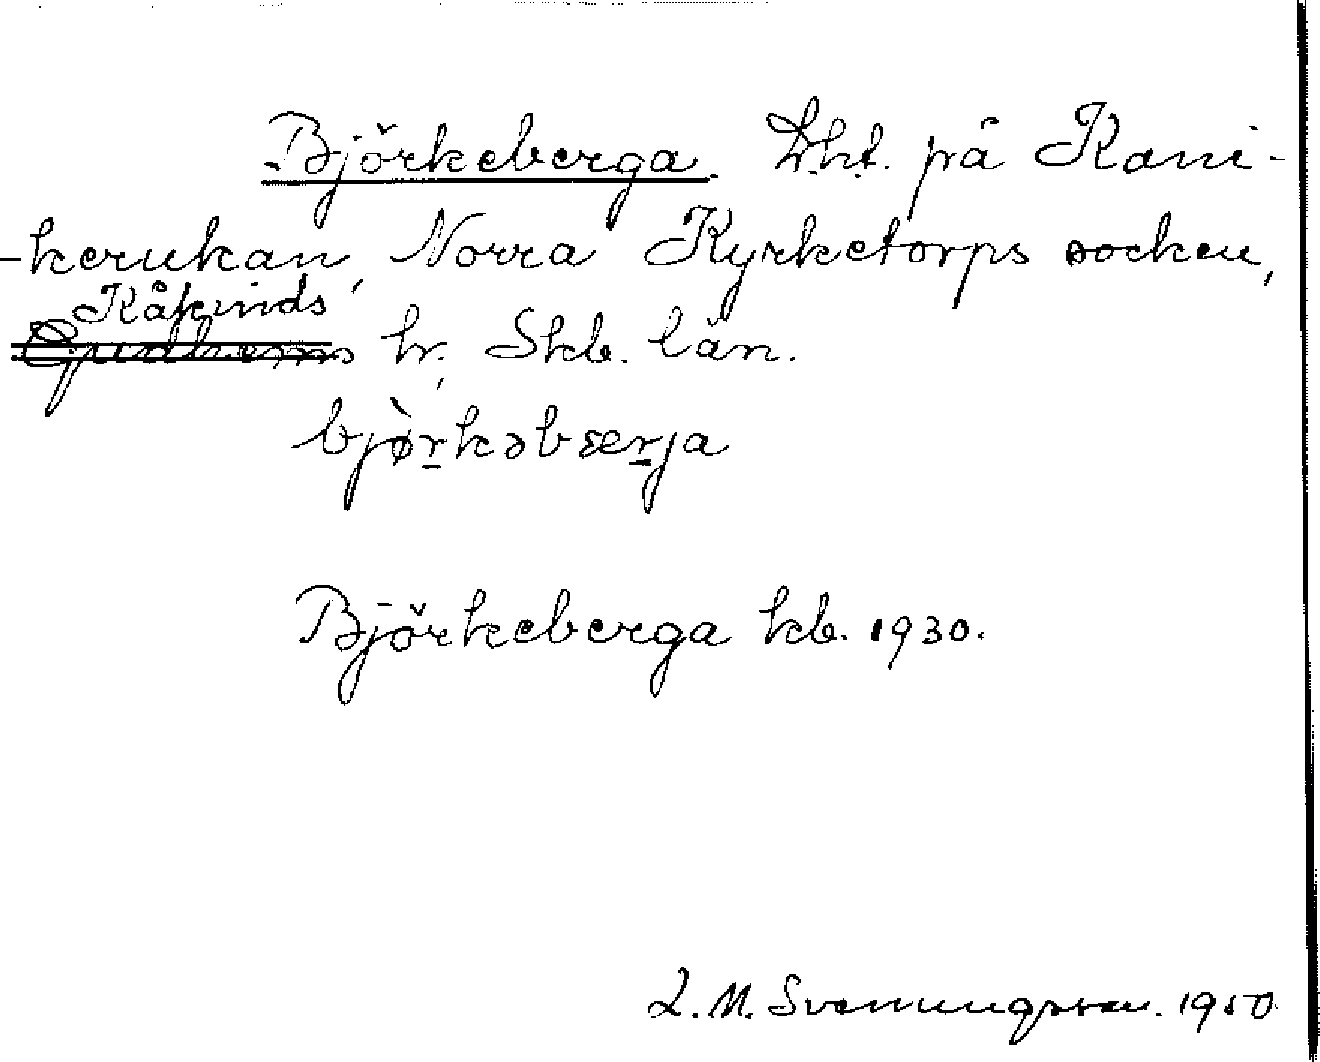 Björkeberga. Lht. på Kani-
-kerukan, Norra Kyrketorps socken,
Kåkinds
Gudhems hr. Skb. län.
bjørkəbærja
Björkeberga kb. 1930.
L. M. Svenungsson. 1950